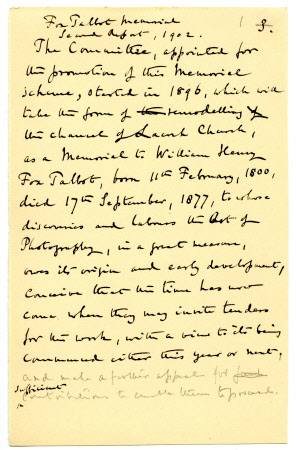 Fox Talbot Memorial 1 3.
Second Report, 1902.
The Committee, appointed for
the promotion of this Memorial
scheme, started in 1896, which will
take the form of the remodelling of
the chancel of Lacock Church,
as a Memorial to William Henry
Fox Talbot, born 11th February, 1800,
died 17th September, 1877, to whose
discoveries and labours the Art of
Photography, in a great measure,
owes its origin and early development,
conceive that the time has now
come when they may invite tenders
for the work, with a view to its being
commenced either this year or next,
and make a further appeal for
sufficient
contributions to enable them to proceed.